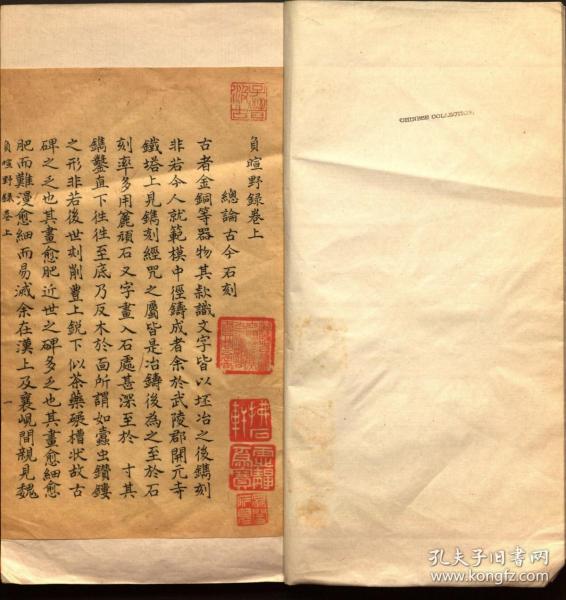 負暄野録卷上
總論古今石刻
古者金銅等器物其款識文字皆以坯冶之後鐫刻
非若今人就範模中徑鑄成者余於武陵郡開元寺
鐵塔上見鐫刻經咒之屬皆是冶鑄後為之至於石
刻率多用麄頑石又字畫入石處甚深至於 寸其
鐫鑿直下徃徃至底乃反木於面所謂如蠹虫鑽鏤
之形非若後世刻削豐上銳下似茶藥碾槽狀故古
碑之乏也其畫愈肥近世之碑多乏也其畫愈細愈
肥而難漫愈細而易滅余在漢上及襄峴間親見魏
負暄野録卷上
一
CHINESE COLLECTION
孔夫子旧书网
www.kongfz.com